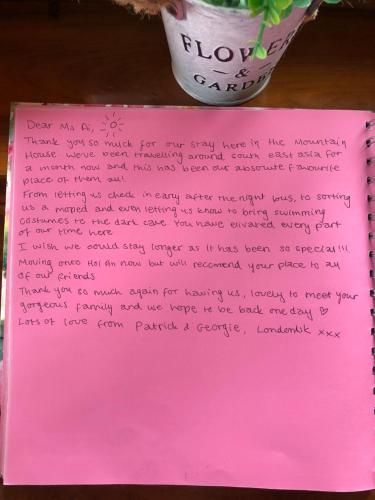 FLOWERS
&
GARDEN
Dear Ms Ai,
Thank you so much for our stay here in the Mountain
House. We've been travelling around south east asia for
a month now and this has been our absolute favourite
place of them all!
From letting us check in early after the night bus, to sorting
us a moped and even letting us know to bring swimming
costumes to the dark cave. You have elivated every part
of our time here
I wish we could stay longer as it has been so special!!!
Moving onto Hoi An now but will reccomend your place to all
of our friends
Thank you so much again for having us, lovely to meet your
gorgeous family and we hope to be back one day ♡
Lots of love from Patrick & Georgie, London UK xxx